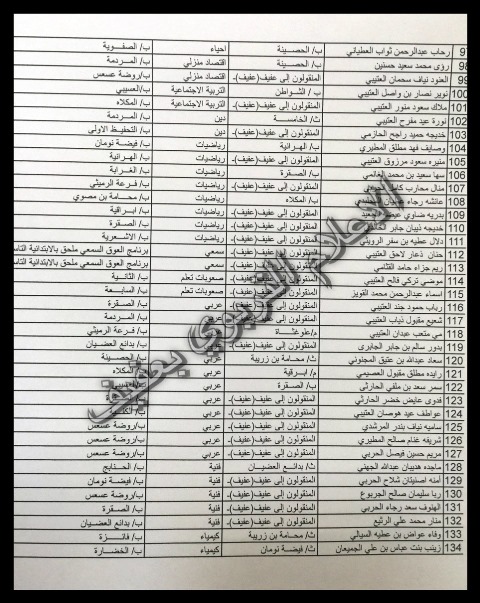 97 رحاب عبدالرحمن ثواب العطياني ب/ الحصينة احياء ب/ الصفوية
98 رؤى محمد سعيد حسنين ب/ الحصينة اقتصاد منزلي ب/ المردمة
99 العنود نياف سحمان العتيبي المنقولون إلى عفيف(عفيف)ـ اقتصاد منزلي ب/روضة عسعس
100 نوير نصار بن واصل العتيبي ب/ الشواطن التربية الاجتماعية ب/العسيبي
101 ملاك سعود منور العتيبي المنقولون إلى عفيف(عفيف)ـ التربية الاجتماعية ب/ المكلاه
102 نورة عيد مفرح العتيبي ث/ الخامسة دين ب/ المردمة
103 خديجه حميد راجح الحازمي المنقولون إلى عفيف(عفيف)ـ دين ب/ التحفيظ الاولى
104 وصايف فهد مطلق المطيري ب/ الهرانية رياضيات ب/ فيضة نومان
105 منيره سعود مرزوق العتيبي المنقولون إلى عفيف(عفيف)ـ رياضيات ب/ الهرانية
106 سها سعيد بن محمد الغانمي ب/ الصقرة رياضيات ب/ الغرابة
107 منال محارب المنقولون إلى عفيف(عفيف)ـ رياضيات ب/ فرعة الرميثي
108 عائشه رجاء ب/ المكلاه رياضيات ب/ محامة بن مصوي
109 بدريه ضاوي المنقولون إلى عفيف(عفيف)ـ رياضيات ب/ ابراقية
110 خديجه ذيبان جابر المنقولون إلى عفيف(عفيف)ـ رياضيات ب/ الصقرة
111 دلال عطيه بن سفر الرويلي المنقولون إلى عفيف(عفيف)ـ رياضيات ب/ الاشعرية
112 حنان ذعار لاحق العتيبي المنقولون إلى عفيف(عفيف)ـ سمعي برنامج العوق السمعي ملحق بالابتدائية
113 ريم جزاء حامد القثامي المنقولون إلى عفيف(عفيف)ـ سمعي برنامج العوق السمعي ملحق بالابتدائية
114 موضي تركي فالح العتيبي المنقولون إلى عفيف(عفيف)ـ صعوبات تعلم ب/ الثانية
115 اسماء عبدالرحمن محمد القويز المنقولون إلى عفيف(عفيف)ـ صعوبات تعلم ب/ السابعة
116 رباب حمود جند العتيبي المنقولون إلى عفيف(عفيف)ـ عربي ب/ الصقرة
117 شعيع مقبول ذياب العتيبي المنقولون إلى عفيف(عفيف)ـ عربي ب/ المردمة
118 مي متعب عبدان العتيبي م/علوغثاة عربي ب/ فرعة الرميثي
119 بدور سالم بن جابر الجابرى المنقولون إلى عفيف(عفيف)ـ عربي ب/ بدائع العضيان
120 سعاد عبدالله بن عتيق المجنوني ث/ محامة بن زريبة عربي ب/ الحصينة
121 رايده مطلق مقبول العصيمي م/ ابرقية عربي ب/ المكلاه
122 سمر سعد بن ملفي الحارثي ب/ الصقرة عربي
123 فدوى عايض خضر الحارثي المنقولون إلى عفيف(عفيف)ـ عربي
124 عواطف عيد هوصان العتيبي المنقولون إلى عفيف(عفيف)ـ عربي
125 ساميه نياف بندر المرشدي المنقولون إلى عفيف(عفيف)ـ عربي ب/روضة عسعس
126 شريفه غنام صالح المطيري المنقولون إلى عفيف(عفيف)ـ عربي ب/روضة عسعس
127 مريم حسين فيصل الحربي المنقولون إلى عفيف(عفيف)ـ عربي ب/روضة عسعس
128 ماجده هديبان عبدالله الجهني ث/ بدائع العضيان فنية ب/ الحنابج
129 أمنه اصنيتان شلاح الحربي المنقولون إلى عفيف(عفيف)ـ فنية ب/ فيضة نومان
130 ربا سليمان صالح الجربوع المنقولون إلى عفيف(عفيف)ـ فنية ب/روضة عسعس
131 الهنوف سعد رجاء الحربي المنقولون إلى عفيف(عفيف)ـ فنية ب/ الصقرة
132 منار محمد علي الرثيع المنقولون إلى عفيف(عفيف)ـ فنية ب/ بدائع العضيان
133 وفاء عواض بن عطيه السيالي ث/ محامة بن زريبة كيمياء ب/ فائزة
134 زينب بنت عباس بن علي الجميعان ث/ فيضة نومان كيمياء ب/ الخضارة
الاعلام التربوي بعفيف